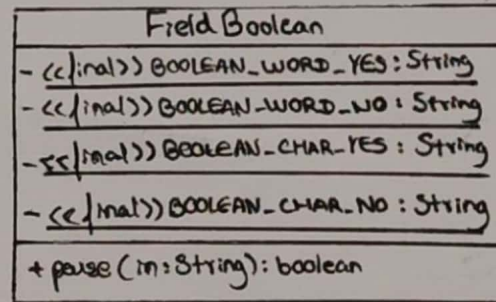 Field Boolean
- <<final>> BOOLEAN_WORD_YES : String
- <<final>> BOOLEAN_WORD_NO : String
- <<final>> BOOLEAN_CHAR_YES : String
- <<final>> BOOLEAN_CHAR_NO : String
+ parse (in : String) : boolean